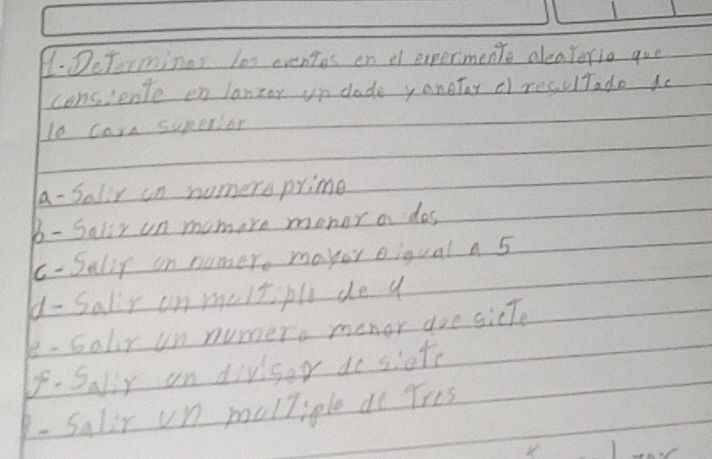 1-Determinar los eventos en el experimento aleatorio que
consiente en lanzar un dado y anotar el resultado de
la cara superior
a-Salir un numero primo
b-Salir un numero menor a dos
c-Salir un numero mayor o igual a 5
d-Salir un multiplo de 4
e-Salir un numero menor que siete
f-Salir un divisor de siete
-Salir un multiplo de Tres